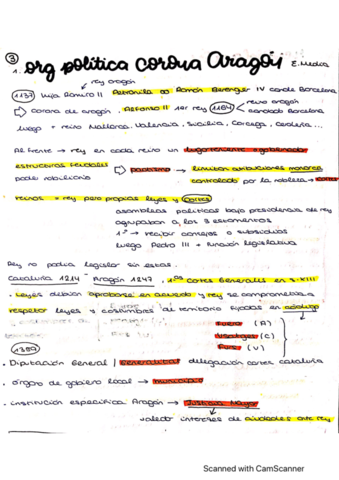 ③
1. org política corona Aragón E. Media
rey aragón
1137 hija Ramiro II Petronila ∞ Ramón Berenguer IV conde Barcelona
reino aragón
⇨ corona de aragón, Alfonso II 1er rey (1164) condado Barcelona
luego + reino Mallorca, Valencia, Sicilia, Corcega, Cerdeña...
Al frente → rey en cada reino un lugarteniente o gobernador
estructuras feudales ⇨ pactismo → limitar atribuciones monarca
poder nobiliario controlado por la nobleza → cortes
reinos = rey pero propias leyes y cortes
asambleas políticas bajo presidencia de rey
agrupaban a los 3 estamentos
1º → recibir consejos o subsidios
luego Pedro III + función legislativa
Rey no podia legislar sin estas.
Cataluña 1214 Aragón 1247. 1as Cortes Generales en s.XIII
. Leyes debían aprobarse en acuerdo y rey se comprometía a
respetar leyes y costumbres del territorio fijadas en código
Fueros (A)
Usatges (C)
Furs (V)
1359
. Diputación General / Generalitat delegación cortes cataluña
. órgano de gobierno local → municipio
. institución específica Aragón → Justicia Mayor
velador intereses de ciudades ante rey
Scanned with CamScanner